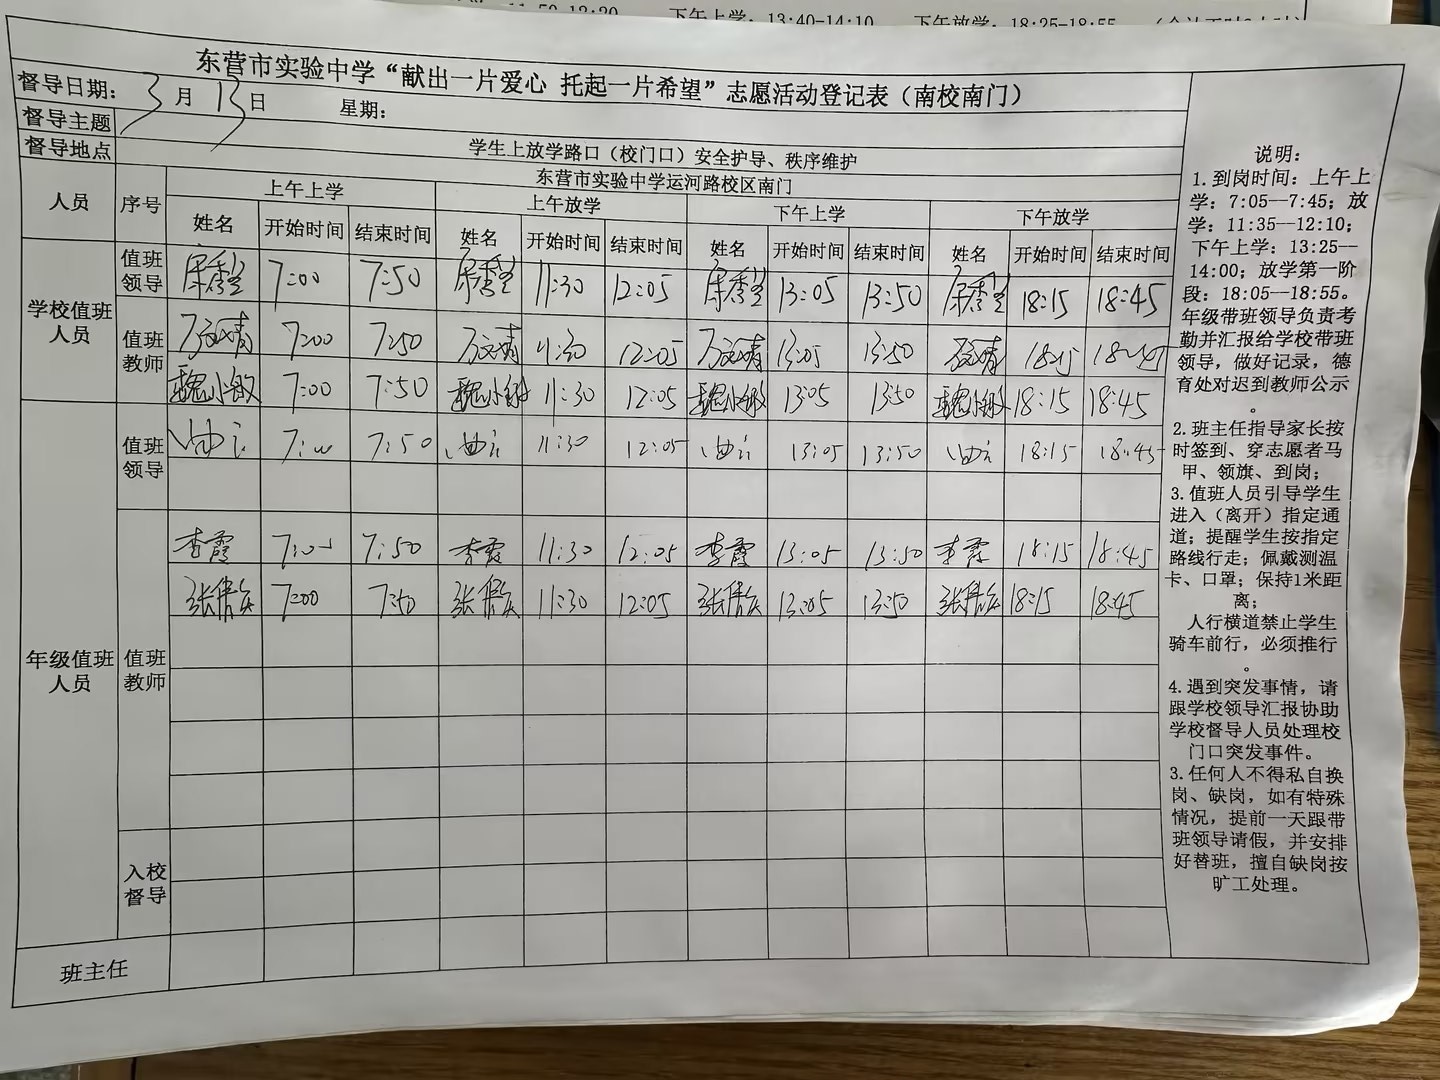 下午上学：13:40-14:10 下午放学：18:25-18:55
东营市实验中学“献出一片爱心 托起一片希望”志愿活动登记表（南校南门）
督导日期： 3月13日 星期：
督导主题 学生上放学路口（校门口）安全护导、秩序维护
督导地点 东营市实验中学运河路校区南门
人员 序号 上午上学 上午放学 下午上学 下午放学
姓名 开始时间 结束时间 姓名 开始时间 结束时间 姓名 开始时间 结束时间 姓名 开始时间 结束时间
学校值班人员
值班领导 7:00 7:50 11:30 12:05 13:05 13:50 18:15 18:45
值班教师 7:00 7:50 11:30 12:05 13:05 13:50 18:15 18:45
魏小敏 7:00 7:50 魏小敏 11:30 12:05 魏小敏 13:05 13:50 魏小敏 18:15 18:45
年级值班人员
值班领导 7:00 7:50 11:30 12:05 13:05 13:50 18:15 18:45
值班教师
李霞 7:00 7:50 李霞 11:30 12:05 李霞 13:05 13:50 李霞 18:15 18:45
7:00 7:50 11:30 12:05 13:05 13:50 18:15 18:45
入校督导
班主任
说明：
1.到岗时间：上午上
学：7:05--7:45；放
学：11:35--12:10；
下午上学：13:25--
14:00；放学第一阶
段：18:05--18:55。
年级带班领导负责考
勤并汇报给学校带班
领导，做好记录，德
育处对迟到教师公示
。
2.班主任指导家长按
时签到、穿志愿者马
甲、领旗、到岗；
3.值班人员引导学生
进入（离开）指定通
道；提醒学生按指定
路线行走；佩戴测温
卡、口罩；保持1米距
离；
人行横道禁止学生
骑车前行，必须推行
。
4.遇到突发事情，请
跟学校领导汇报协助
学校督导人员处理校
门口突发事件。
3.任何人不得私自换
岗、缺岗，如有特殊
情况，提前一天跟带
班领导请假，并安排
好替班，擅自缺岗按
旷工处理。